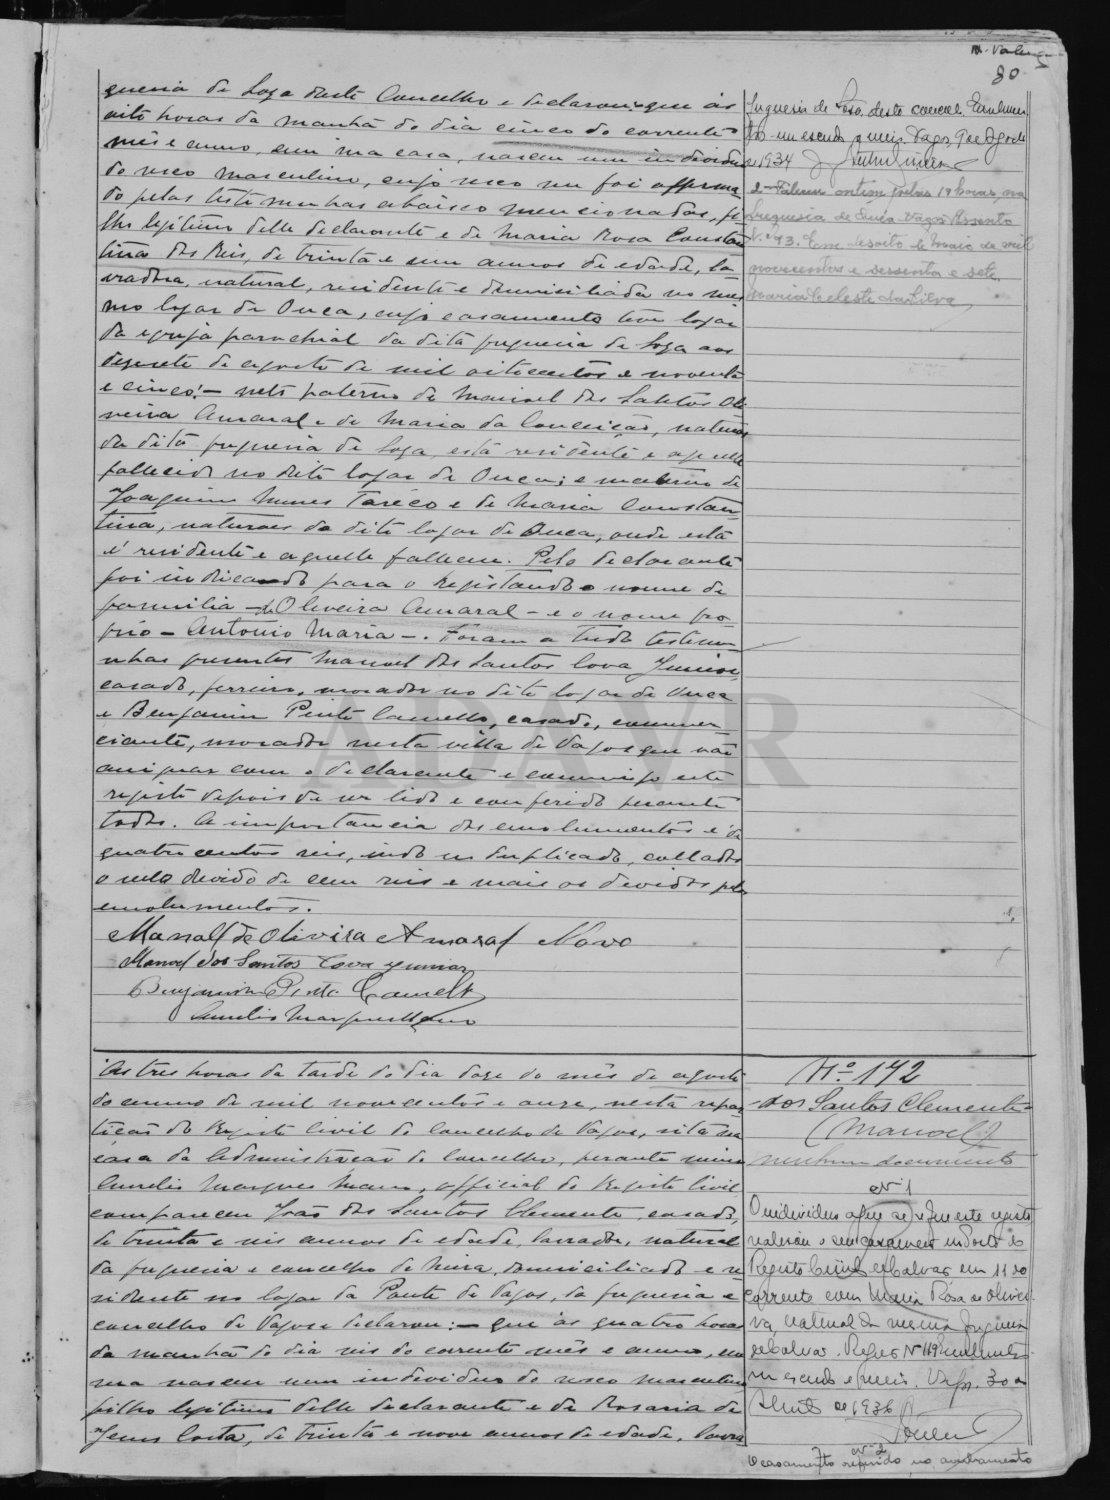 80
guesia de Soza deste Concelho e declarou: que ás
oito horas da manhã do dia cinco do corrente
mês e anno, em sua casa, nasceu um individuo
do sexo masculino, cujo sexo me foi affirma
do pelas testemunhas abaixo mencionadas, fi
lho legitimo delle declarante e de Maria Rosa Constan
tina dos Reis, de trinta e um annos de edade, la
vradora, natural, residente e domiciliada no mes
mo logar de Ouca, cujo casamento teve logar
na egreja parochial da dita freguesia de Soza aos
desesete de agosto de mil oitocentos e noventa
e cinco: – neto paterno de Manoel dos Santos Oli
veira Amaral e de Maria da Conceição, naturaes
da dita freguesia de Soza, esta residente e aquelle
fallecido no dito logar de Ouca; e materno de
Joaquim Nunes Taréco e de Maria Constan
tina, naturaes do dito logar de Ouca, onde esta
é residente e aquelle falleceu. Pelo declarante
foi indicado para o registando o nome de
familia – de Oliveira Amaral – e o nome pro
prio – Antonio Maria –. Foram a tudo testemu
nhas presentes Manoel dos Santos Cova Junior,
casado, ferreiro, morador no dito logar de Ouca
e Benjamin Pinto Camello, casado, commer
ciante, morador nesta villa de Vagos que vão
assignar com o declarante e commigo este
registo depois de ser lido e conferido perante
todos. A importancia dos emolumentos é de
quatro centos reis, indo no duplicado, collados
o sello devido de cem reis e mais os devidos pelos
emolumentos.
Manoel de Oliveira Amaral Novo
Manoel dos Santos Cova Junior
Benjamim Pinto Camello
Aurelio Marques Mano
freguesia de Soza, deste concelho. Emolumen
tos um escudo e meio. Vagos, 9 de Agosto
de 1934
2 – Faleceu ontem pelas 19 horas, na
freguesia de Ouca – Vagos Assento
N.º 93. Em desoito de Maio de mil
novecentos e sessenta e sete.
Maria Celeste da Silva
A's tres horas da tarde do dia doze do mês de agosto
do anno de mil novecentos e onze, nesta repar
tição do Registo Civil do Concelho de Vagos, sita na
casa da Administração do Concelho, perante mim
Aurelio Marques Mano, official do Registo Civil
compareceu João dos Santos Clemente, casado,
de trinta e seis annos de edade, lavrador, natural
da freguesia e concelho de Mira, domiciliado e re
sidente no logar da Ponte de Vagos, da freguesia e
concelho de Vagos e declarou: – que ás quatro horas
da manhã do dia seis do corrente mês e anno, em
sua nasceu um individuo do sexo masculino
filho legitimo delle declarante e de Rosaria de
Jesus Costa, de trinta e nove annos de edade, lavra
Nº 142
dos Santos Clemente
(Manoel)
nenhum documento
Nº 1
O individuo a que se refere este registo
realisou o seu casamento no Posto do
Registo Civil de Calvão em 11 do
corrente com Maria Rosa de Olivei-
ra, natural da mesma freguesia
de Calvão. Registo Nº 119. Emolumentos
um escudo e meio. Vagos, 30 de
Abril de 1936
Nº 2
O casamento referido no averbamento
ADAVR